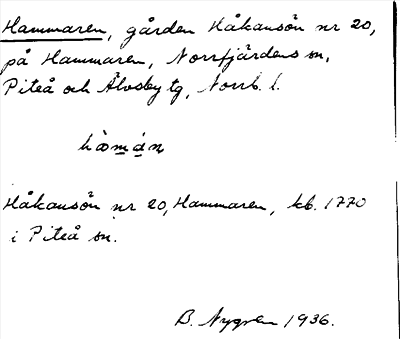 Hammaren, gården Håkansön nr 20,
på Hammaren, Norrfjärdens sn,
Piteå och Älvsby tg, Norrb. l.
hàmán
Håkansön nr 20, Hammaren, kb. 1770
i Piteå sn.
B. Nygren 1936.